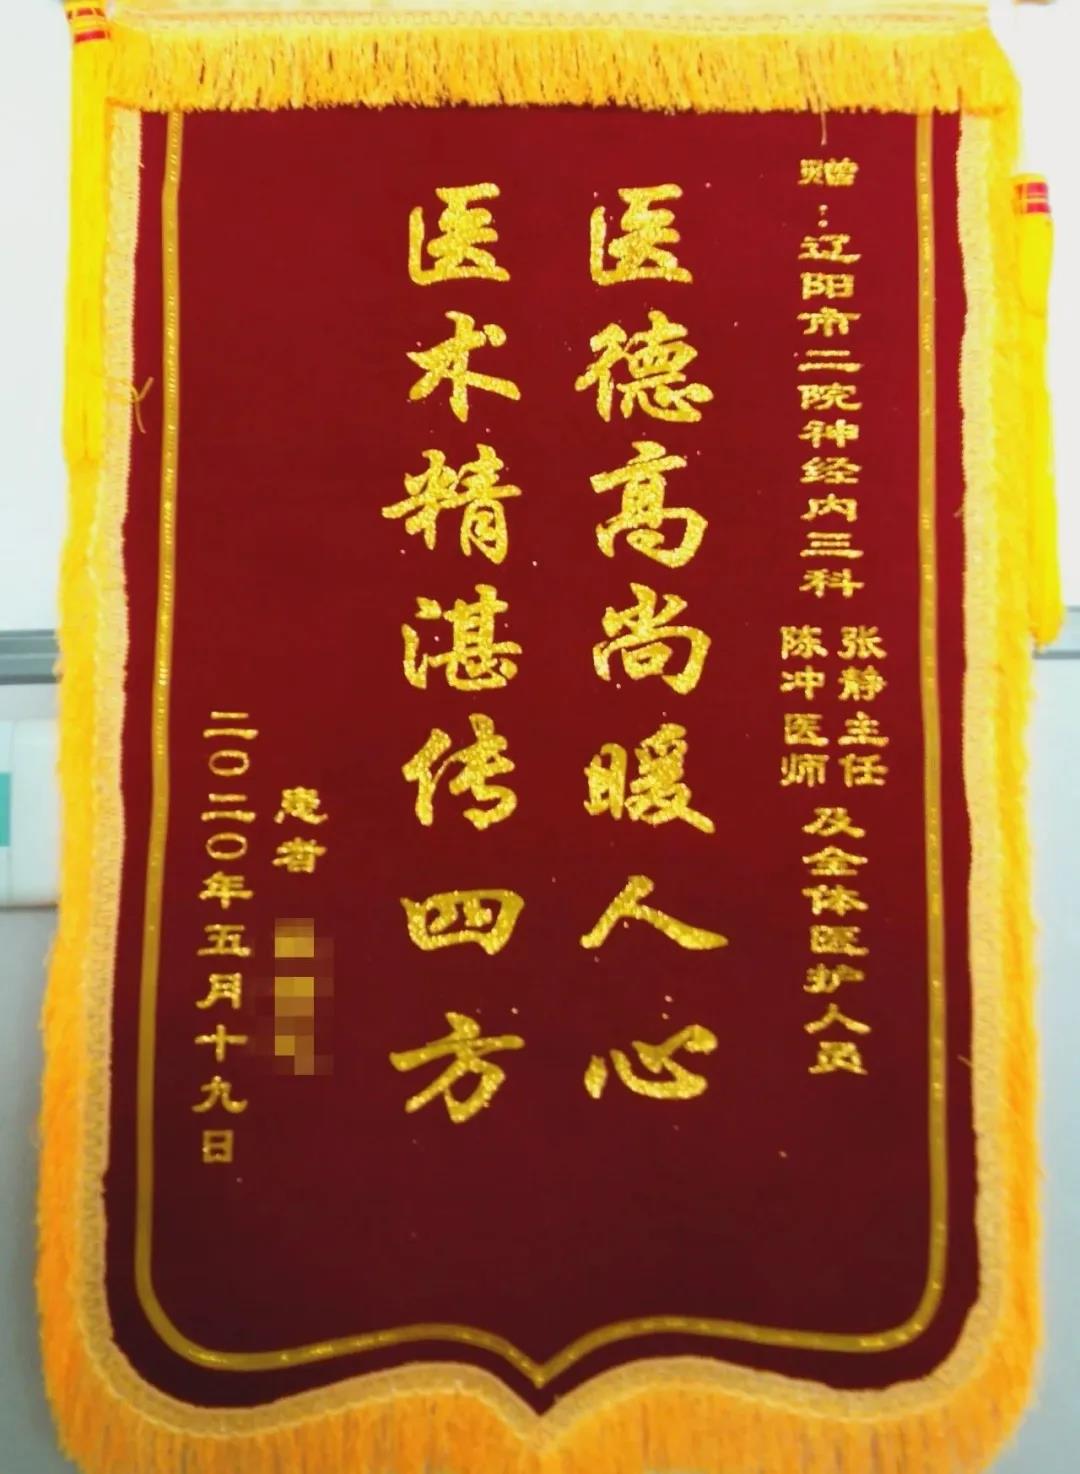 赠：辽阳市二院神经内三科
张静主任
陈冲医师
及全体医护人员
医德高尚暖人心
医术精湛传四方
患者
二〇二〇年五月十九日